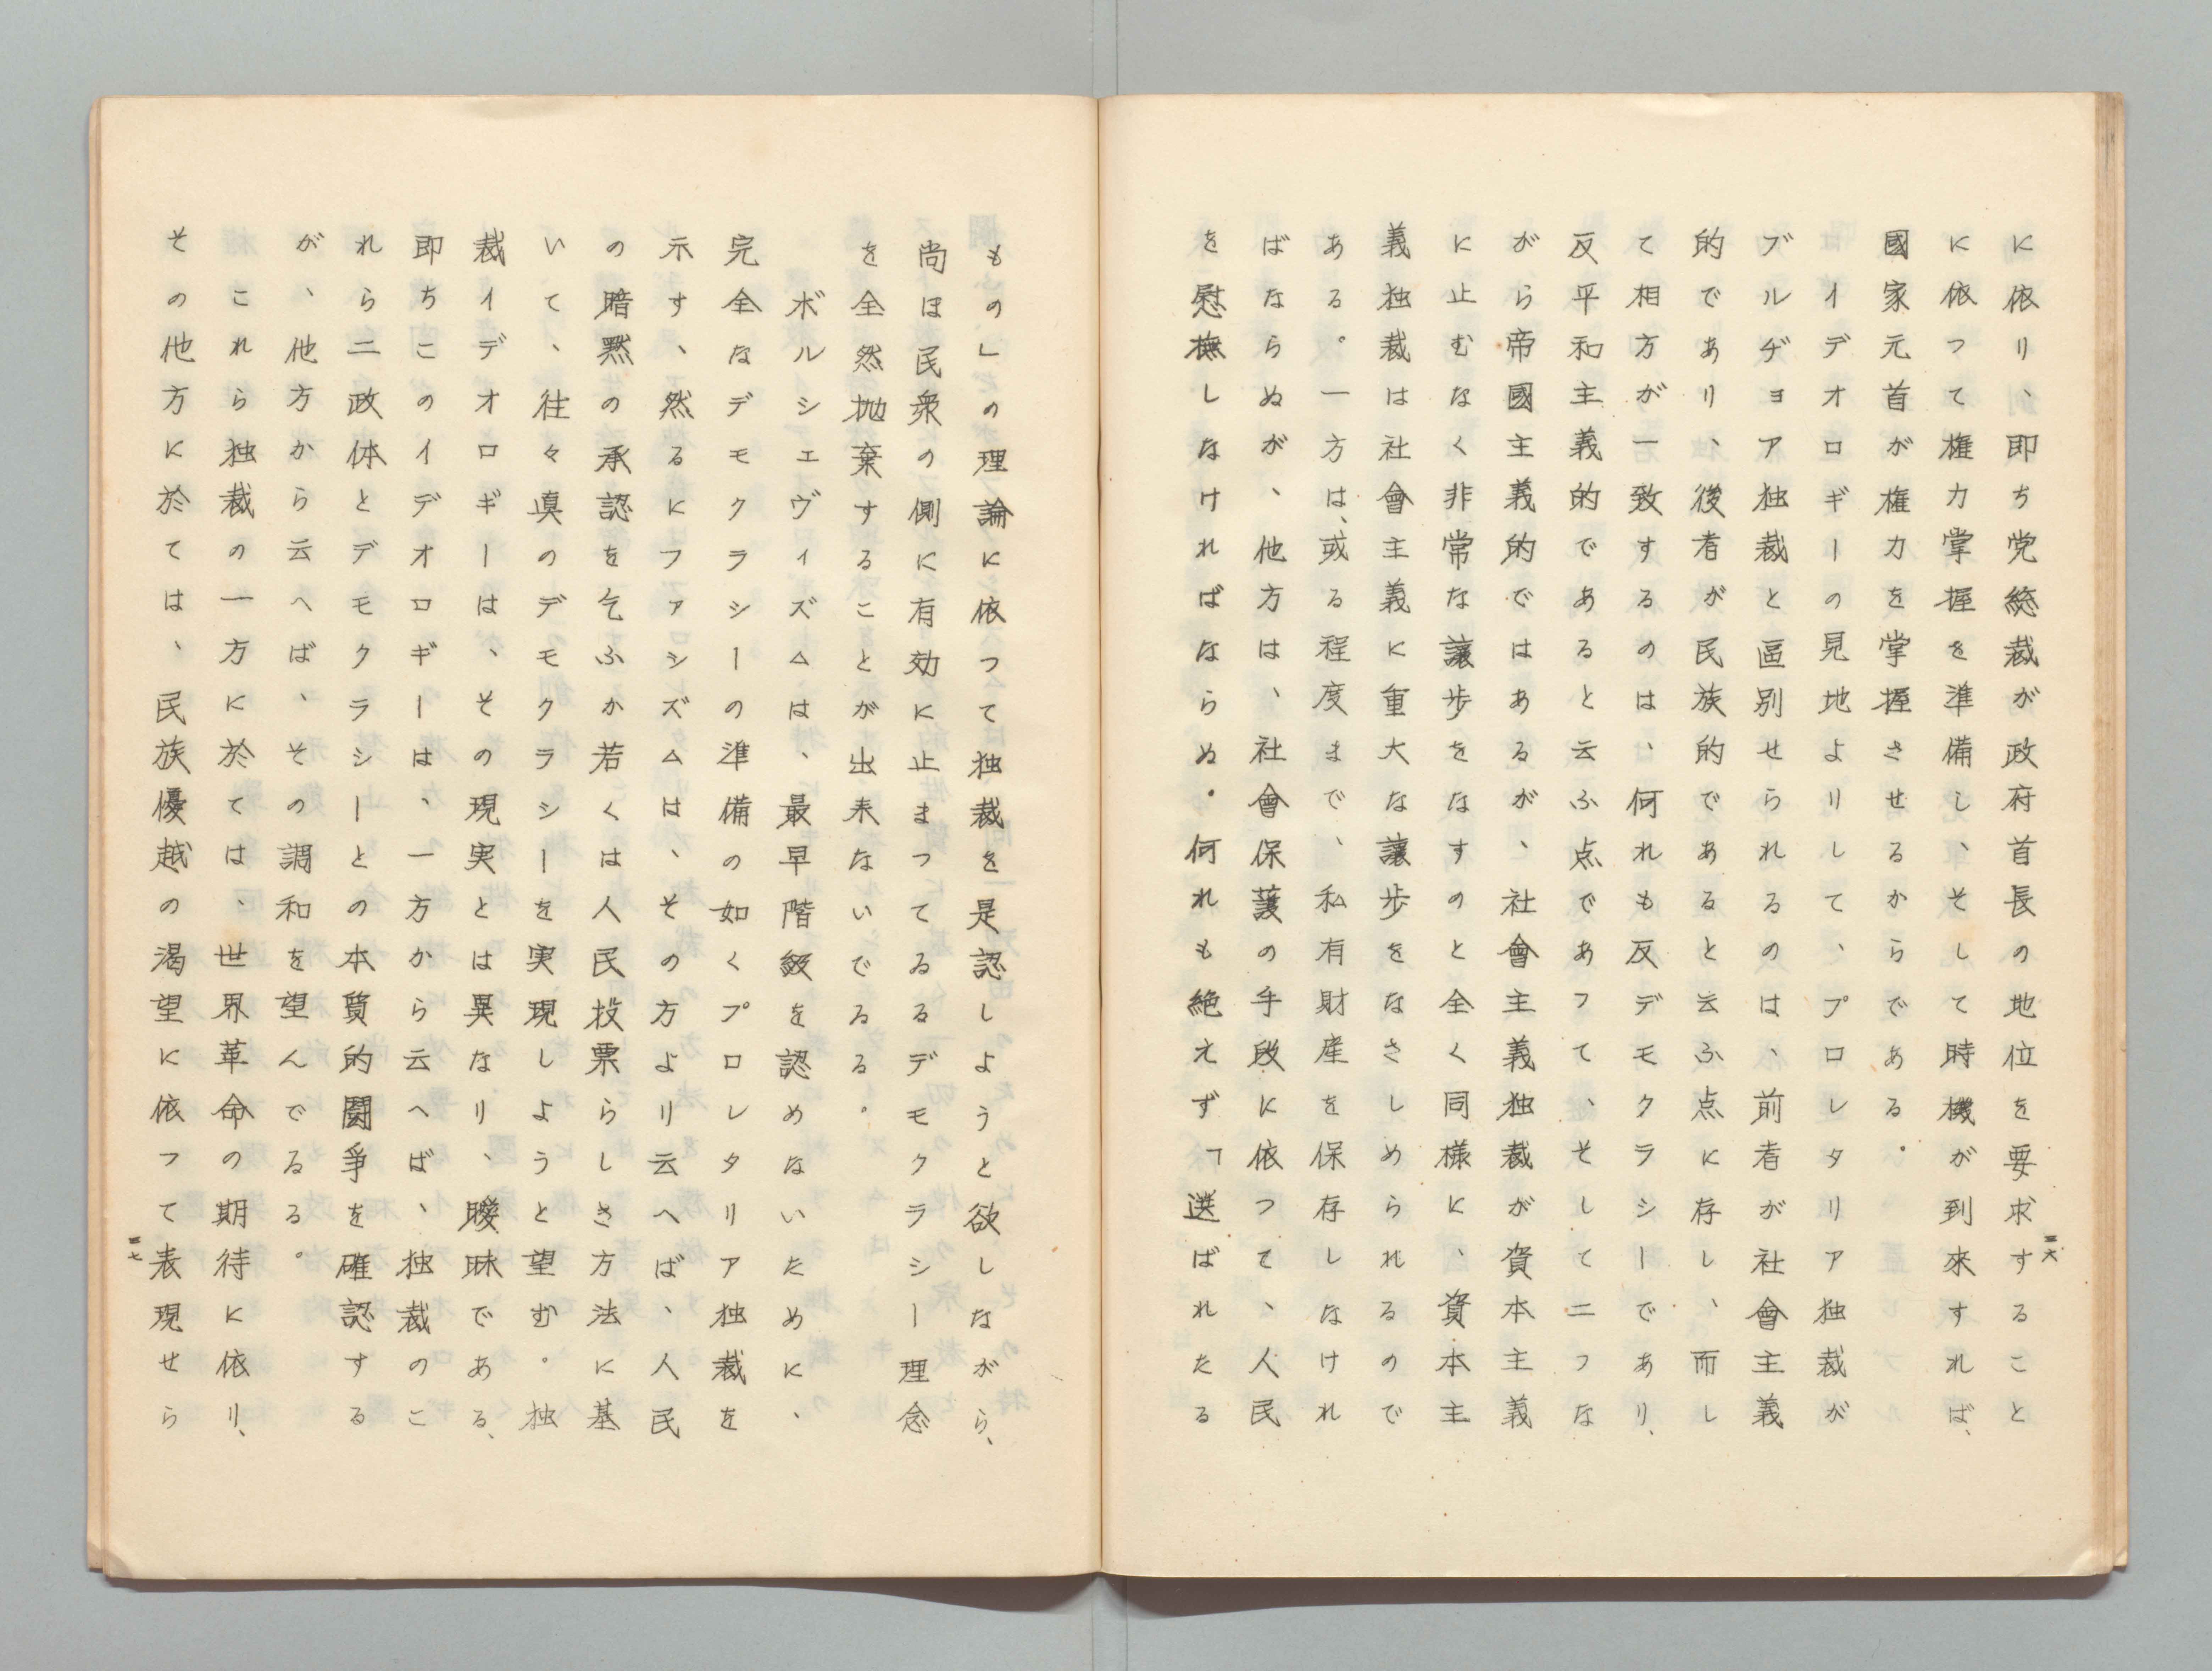 に依り、即ち党総裁が政府首長の地位を要求すること
に依つて権力掌握を準備し、そして時機が到來すれば、
國家元首が権力を掌握させるからである。
はイデオロギーの見地よりして、プロレタリア独裁が
ブルヂョア独裁と區別せられるのは、前者が社會主義
的であり、後者が民族的であると云ふ点に存し、而し
て相方が一致するのは、何れも反デモクラシーであり、
反平和主義的であると云ふ点であつて、そして二つな
がら帝國主義的ではあるが、社會主義独裁が資本主義
に止むなく非常な讓歩をなすのと全く同様に、資本主
義独裁は社會主義に重大な讓歩をなさしめられるので
ある。一方は、或る程度まで、私有財産を保存しなけれ
ばならぬが、他方は、社會保護の手段に依つて、人民
を慰撫しなければならぬ。何れも絶えず「選ばれたる
三六
もの」の理論に依つて独裁を是認しようと欲しながら、
尚ほ民衆の側に有効に止まつてゐるデモクラシー理念
を全然抛棄することが出来ないでゐる。
ボルシェヴィズムは、最早階級を認めないために、
完全なデモクラシーの準備の如くプロレタリア独裁を
示す、然るにファシズムは、その方より云へば、人民
の暗黙の承認を乞ふか若くは人民投票らしき方法に基
いて、往々眞のデモクラシーを実現しようと望む。独
裁イデオロギーは、その現実とは異なり、曖昧である、
即ちこのイデオロギーは、一方から云へば、独裁のこ
れら二政体とデモクラシーとの本質的鬪爭を確認する
が、他方から云へば、その調和を望んでゐる。
これら独裁の一方に於ては、世界革命の期待に依り、
その他方に於ては、民族優越の渇望に依つて表現せら
三七